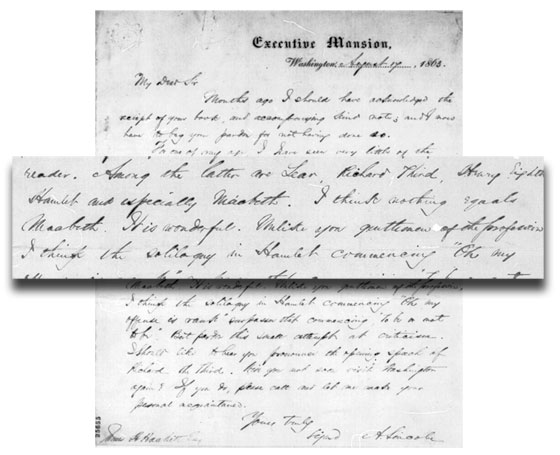 Executive Mansion,
Washington, August 17, 1863.
My Dear Sir
Months ago I should have acknowledged the
receipt of your book, and accompanying kind note; and I now
have to beg your pardon for not having done so.
For one of my age, I have seen very little of the
reader. Among the latter are Lear, Richard Third, Henry Eighth
Hamlet and especially Macbeth. I think nothing equals
Macbeth. It is wonderful. Unlike you gentlemen of the profession
I think the soliloquy in Hamlet commencing "Oh my
Macbeth. It is wonderful. Unlike you gentlemen of the profession,
I think the soliloquy in Hamlet commencing "Oh my
offense is rank" surpasses that commencing "To be or not
to be." But pardon this small attempt at criticism.
I should like to hear you pronounce the opening speech of
Richard the Third. Will you not soon visit Washington
again? If you do, please call and let me make your
personal acquaintance.
Yours truly
Signed A. Lincoln
James H. Hackett, Esq